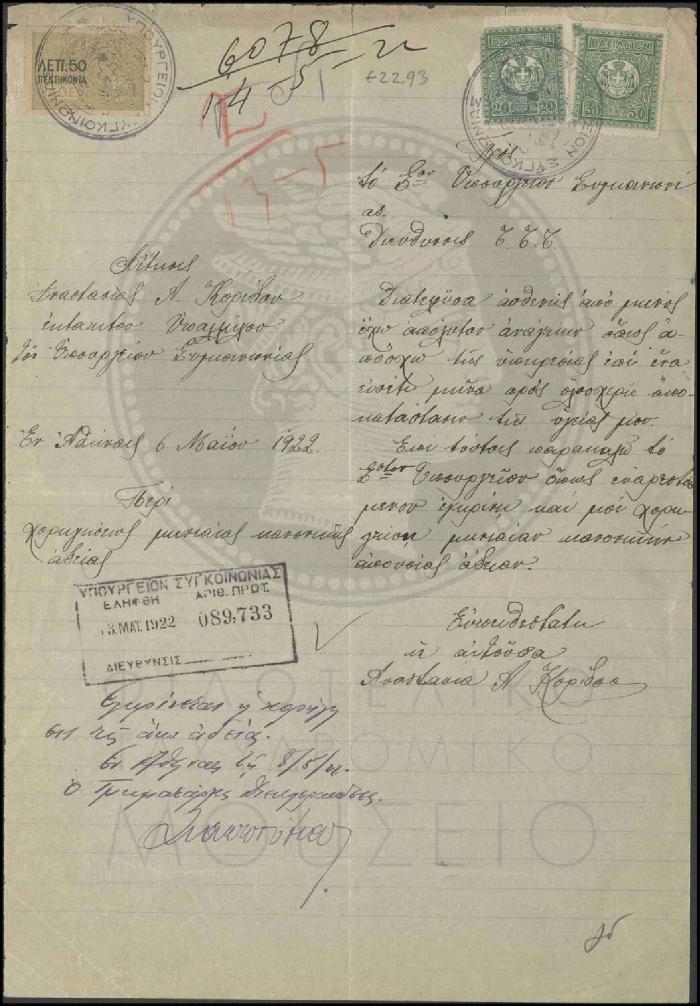 ΛΕΠ. 50
ΠΕΝΤΗΚΟΝΤΑ
ΥΠΟΥΡΓΕΙΟΝ ΣΥΓΚΟΙΝΩΝΙΑΣ
6078
14 5 22
ε2293
13-5
ΒΑΣΙΛΕΙΟΝ
20 20
ΒΑΣΙΛΕΙΟΝ
50 50
Πρός
τό Σον Υπουργείον Συγκοινωνί
ας.
Διεύθυνσις Τ.Τ.Τ.
Αίτησις
Αναστασίας Α. Κορίδου
έκτακτου Υπαλλήλου
τού Υπουργείου Συγκοινωνίας
Εν Αθήναις 6 Μαΐου 1922.
Περί
χορηγήσεως μηνιαίας κανονικής
αδείας
Διατελούσα ασθενής από μηνός
έχω απόλυτον ανάγκην όπως α-
πόσχω τής υπηρεσίας επί ένα
εισέτι μήνα πρός ολοσχερή απο-
κατάστασιν τής υγείας μου.
Επί τούτοις παρακαλώ τό
Σον Υπουργείον όπως ευαρεστού
μενον εγκρίνη καί μοί χορη
γήση μηνιαίαν κανονικήν
απουσίας άδειαν.
Ευπειθεστάτη
η αιτούσα
Αναστασία Α. Κορίδου
ΥΠΟΥΡΓΕΙΟΝ ΣΥΓΚΟΙΝΩΝΙΑΣ
ΕΛΗΦΘΗ ΑΡΙΘ. ΠΡΩΤ.
13. ΜΑΪ. 1922 089,733
ΔΙΕΥΘΥΝΣΙΣ
Εγκρίνεται η χορήγη
σις τής άνω αδείας.
Εν Αθήναις τή 8/5/22.
Ο Τμηματάρχης
ΦΙΛΟΤΕΛΙΚΟ
ΤΑΧΥΔΡΟΜΙΚΟ
ΜΟΥΣΕΙΟ